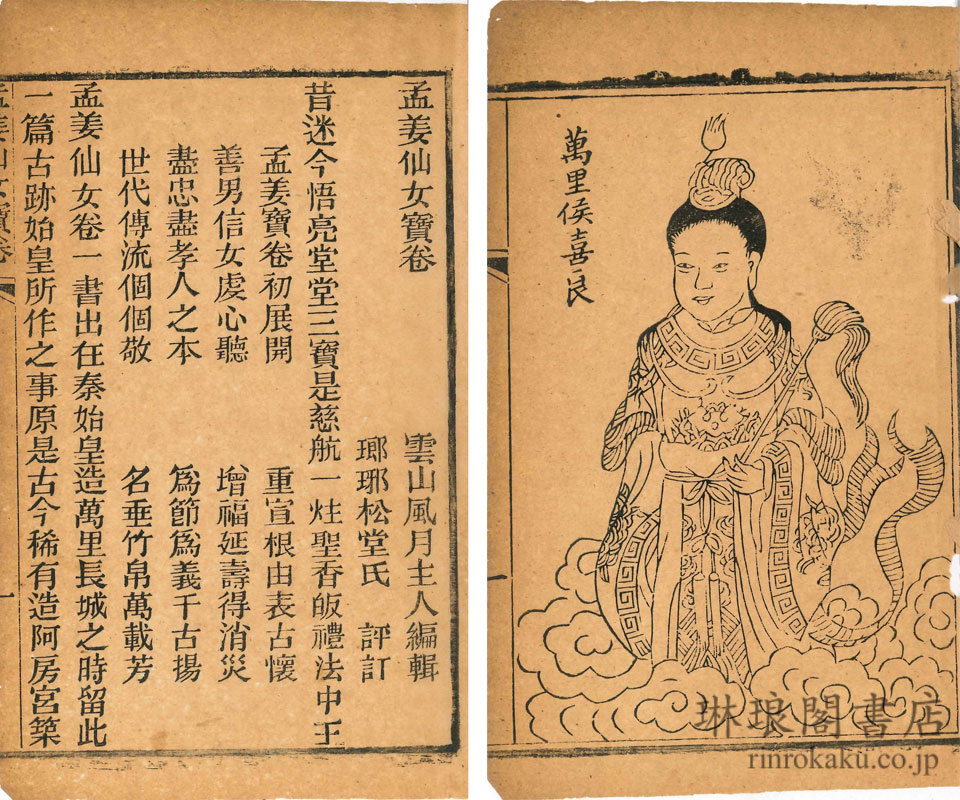 萬里侯喜良
孟姜仙女寶卷
雲山風月主人編輯
瑯琊松堂氏 評訂
昔迷今悟亮堂堂三寶是慈航一炷聖香皈禮法中王
孟姜寶卷初展開 重宣根由表古懷
善男信女虔心聽 增福延壽得消災
盡忠盡孝人之本 爲節爲義千古揚
世代傳流個個敬 名垂竹帛萬載芳
孟姜仙女卷一書出在秦始皇造萬里長城之時留此
一篇古跡始皇所作之事原是古今稀有造阿房宮築
孟姜仙女寶卷
一
一
琳琅閣書店
rinrokaku.co.jp